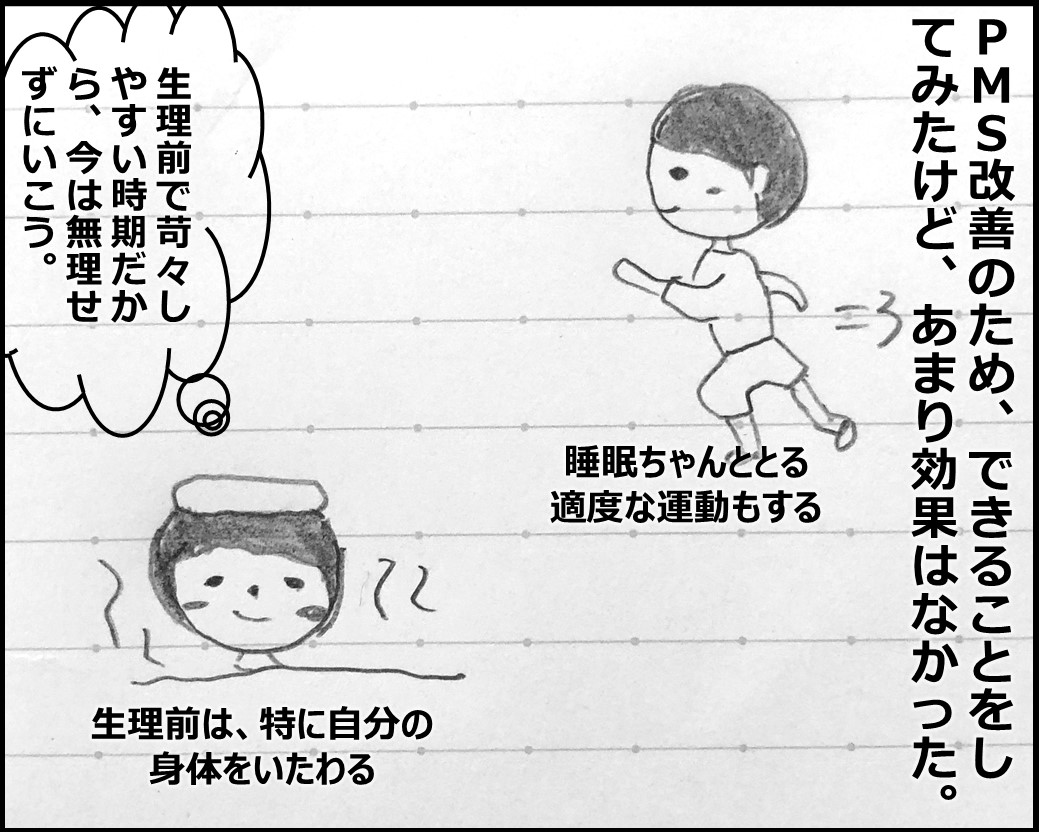 PMS改善のため、できることをし
てみたけど、あまり効果はなかった。
睡眠ちゃんととる
適度な運動もする
生理前で苛々し
やすい時期だか
ら、今は無理せ
ずにいこう。
生理前は、特に自分の
身体をいたわる